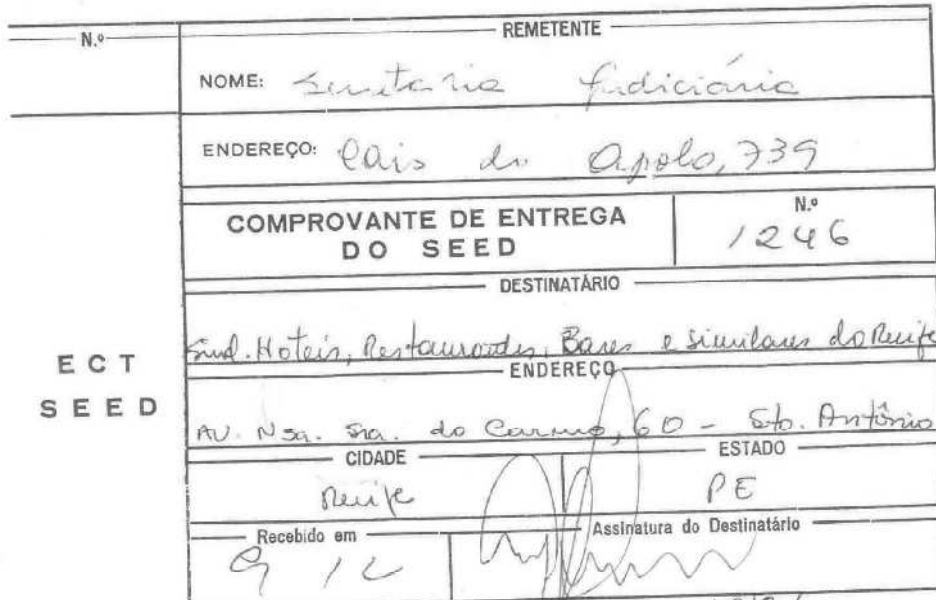 N.º
REMETENTE
NOME: Secretaria Judiciária
ENDEREÇO: Cais do Apolo, 739
COMPROVANTE DE ENTREGA
DO SEED
N.º
1246
DESTINATÁRIO
Sind. Hoteis, Restaurantes, Bares e similares do Recife
ENDEREÇO
AV. Nsa. Sra. do Carmo, 60 - Sto. Antônio
CIDADE
Recife
ESTADO
PE
ECT
SEED
Recebido em
9 12
Assinatura do Destinatário